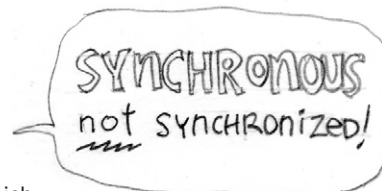 SYNCHRONOUS
not SYNCHRONIZED!